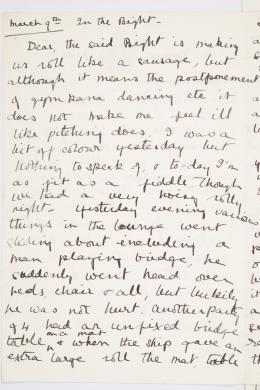 March 9th In the Bight -
Dear, the said Bight is making
us roll like a sausage, but
although it means the postponement
of gymkana dancing etc it
does not make me feel ill
like pitching does. I was a
bit off colour yesterday but
nothing to speak of, & to-day I'm
as fit as a fiddle, though
we had a very noisy rolly
night. Yesterday evening various
things in the lounge went
sliding about including a
man playing bridge, he
suddenly went head over
heels chair & all, but luckily
he was not hurt. Another party
of 4 had an unfixed bridge
table on a mat
& when the ship gave an
extra large roll the mat table